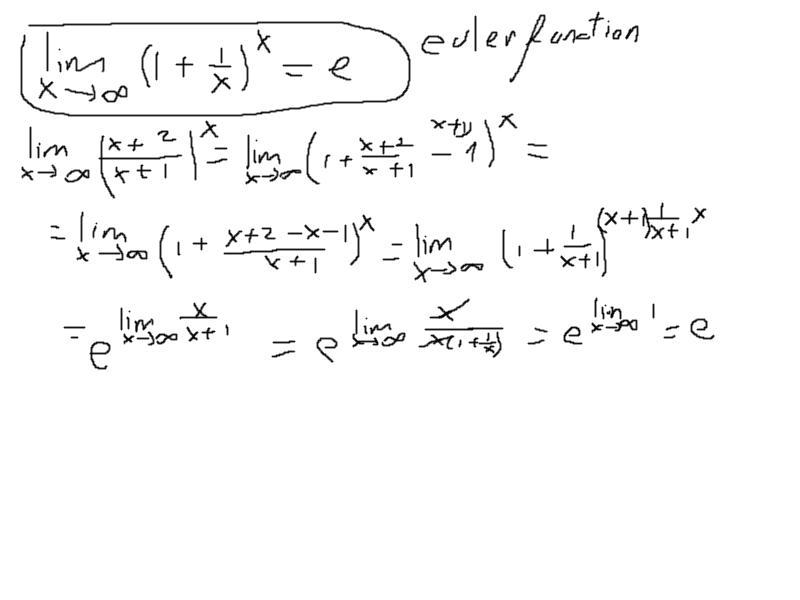 lim x→∞ (1 + 1/x)^x = e euler function
lim x→∞ ((x+2)/(x+1))^x = lim x→∞ (1 + (x+2)/(x+1) - 1^(x+1))^x =
= lim x→∞ (1 + (x+2-x-1)/(x+1))^x = lim x→∞ (1 + 1/(x+1))^((x+1) 1/(x+1) x)
= e^(lim x→∞ x/(x+1)) = e^(lim x→∞ x/(x(1+1/x))) = e^(lim x→∞ 1) = e